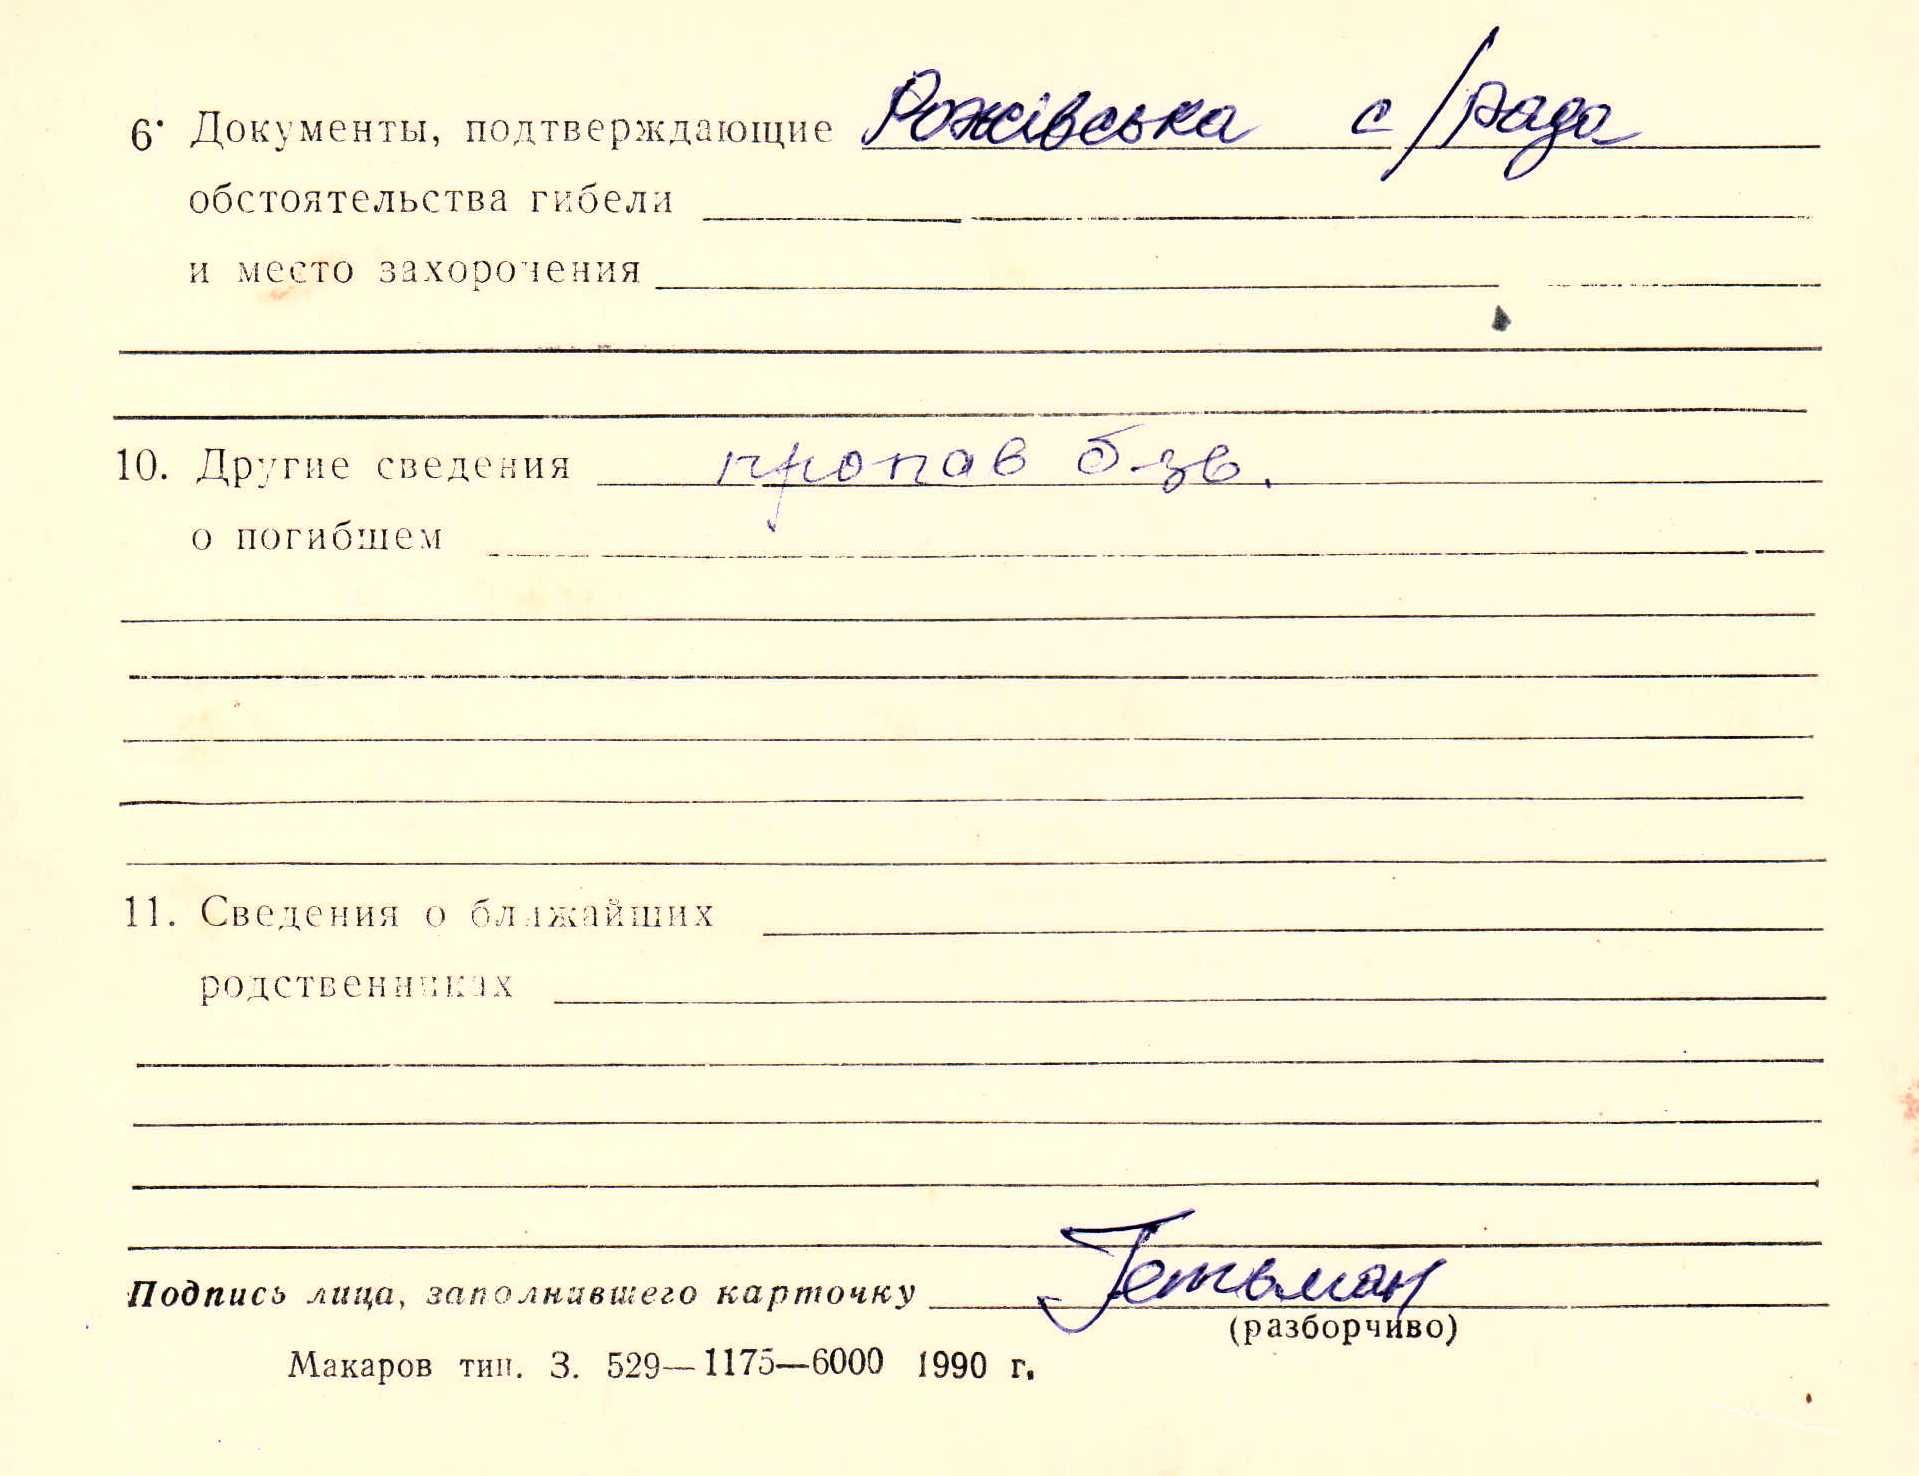 6. Документы, подтверждающие Рожівська с/рада
обстоятельства гибели
и место захоронения
10. Другие сведения пропав бзв.
о погибшем
11. Сведения о ближайших
родственниках
Подпись лица, заполнившего карточку Гетьман
(разборчиво)
Макаров тип. З. 529—1175—6000 1990 г.